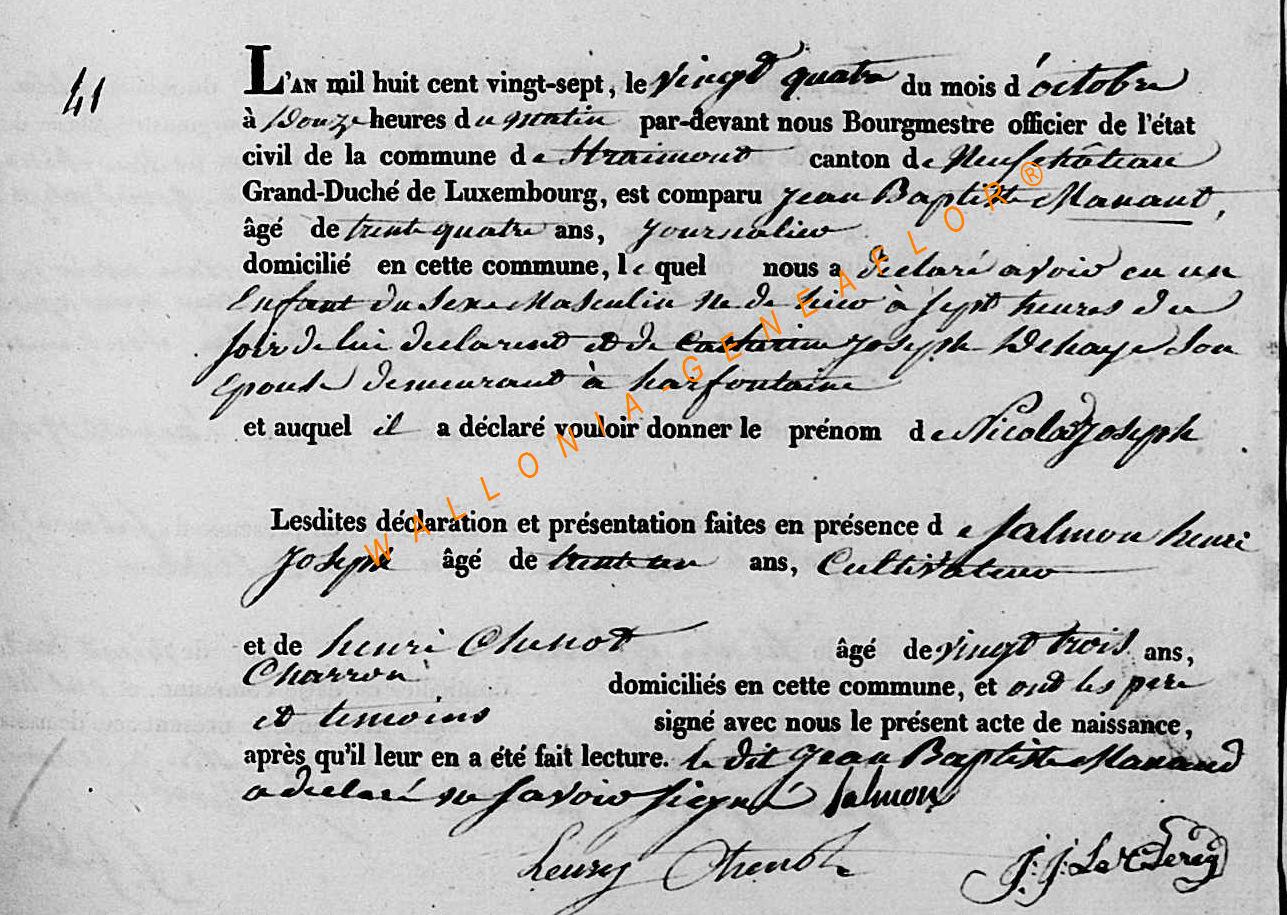 41
L'AN mil huit cent vingt-sept, le vingt quatre du mois d'octobre
à Douze heures du matin par-devant nous Bourgmestre officier de l'état
civil de la commune de Straimont canton de Neufchâteau
Grand-Duché de Luxembourg, est comparu Jean Baptiste Manant,
âgé de trente quatre ans, Journalier
domicilié en cette commune, lequel nous a declaré avoir eu un
Enfant du Sexe Masculin né de hier à sept heures du
soir de lui declarant et de Catherine Joseph Dehaye son
Epouse demeurant à harfontaine
et auquel il a déclaré vouloir donner le prénom de Nicolas Joseph
Lesdites déclaration et présentation faites en présence de Salmon henri
Joseph âgé de trente un ans, Cultivateur
et de henri Chenot âgé de vingt trois ans,
Charron domiciliés en cette commune, et ont les pere
et temoins signé avec nous le présent acte de naissance,
après qu'il leur en a été fait lecture. le dit Jean Baptiste Manand
a declaré ne savoir signé Salmon
henry Chenot J: J: Le Clercq
WALLONIA-GENEAFLOR®